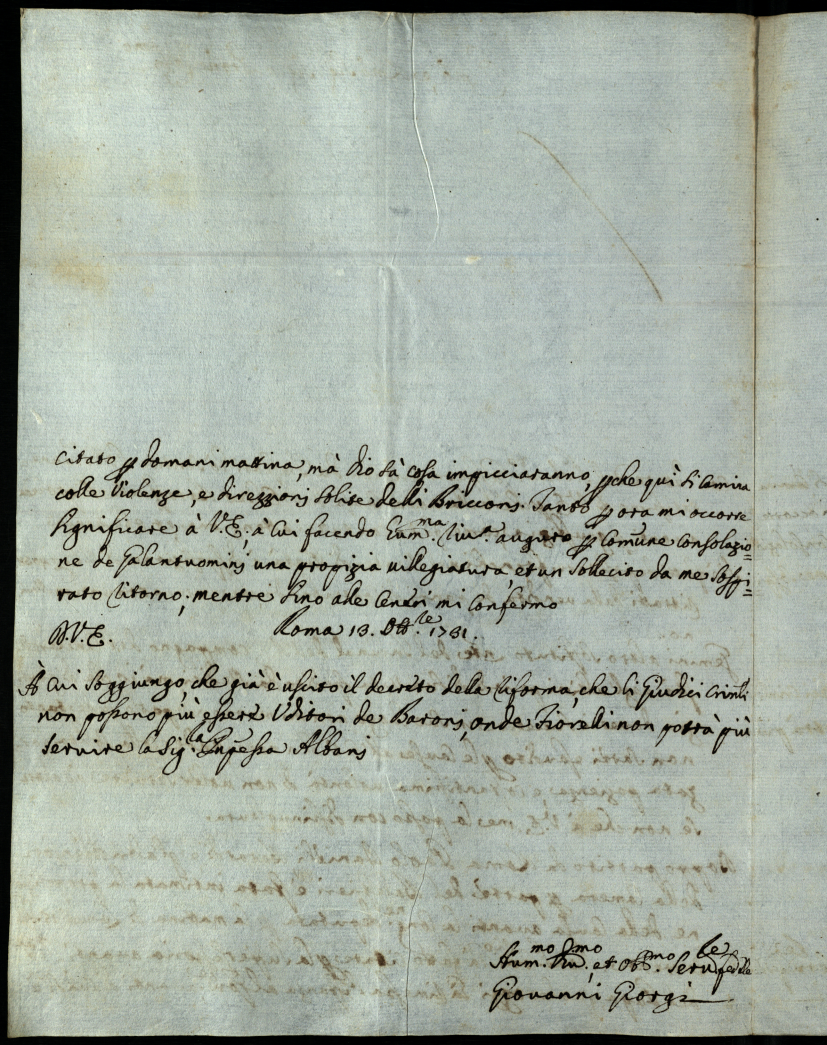 citato p domani mattina, mà Dio sà cosa impicciaranno, pche quì si camina
colle Violenze, e direzzioni solite delli Bricconi. Tanto p ora mi occorre
significare à V.E., à Cui facendo Eum.ma riu.a auguro p Comune Consolazio=
ne de Galantuomini una propizia villegiatura, et un sollecito da me sospi=
rato ritorno, mentre sino alle Ceneri mi Confermo
D.V.E. Roma 13. Ott.le 1731.
À Cui soggiungo, che già è uscito il decreto della riforma, che li Giudici Crim.li
non possono più essere Uditori de Baroni, onde Fiorelli non potrà più
servire la Sig.la Pnpessa Albani
Hum.mo Diu.mo, et Obb.mo Seru.le fedele
Giovanni Giorgi